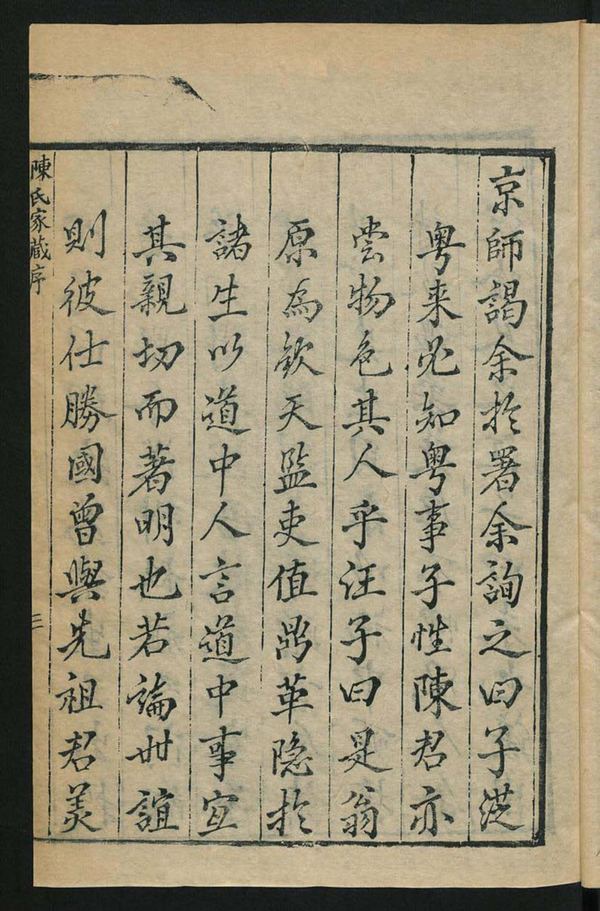 京師謁余扵署余詢之曰子從
粤来必知粤事子性陳君亦
嘗物色其人乎汪子曰是翁
原為欽天監吏值鼎革隐扵
諸生以道中人言道中事宜
其親切而著明也若論世誼
則彼仕勝國曾與先祖君美
陳氏家蔵序
三